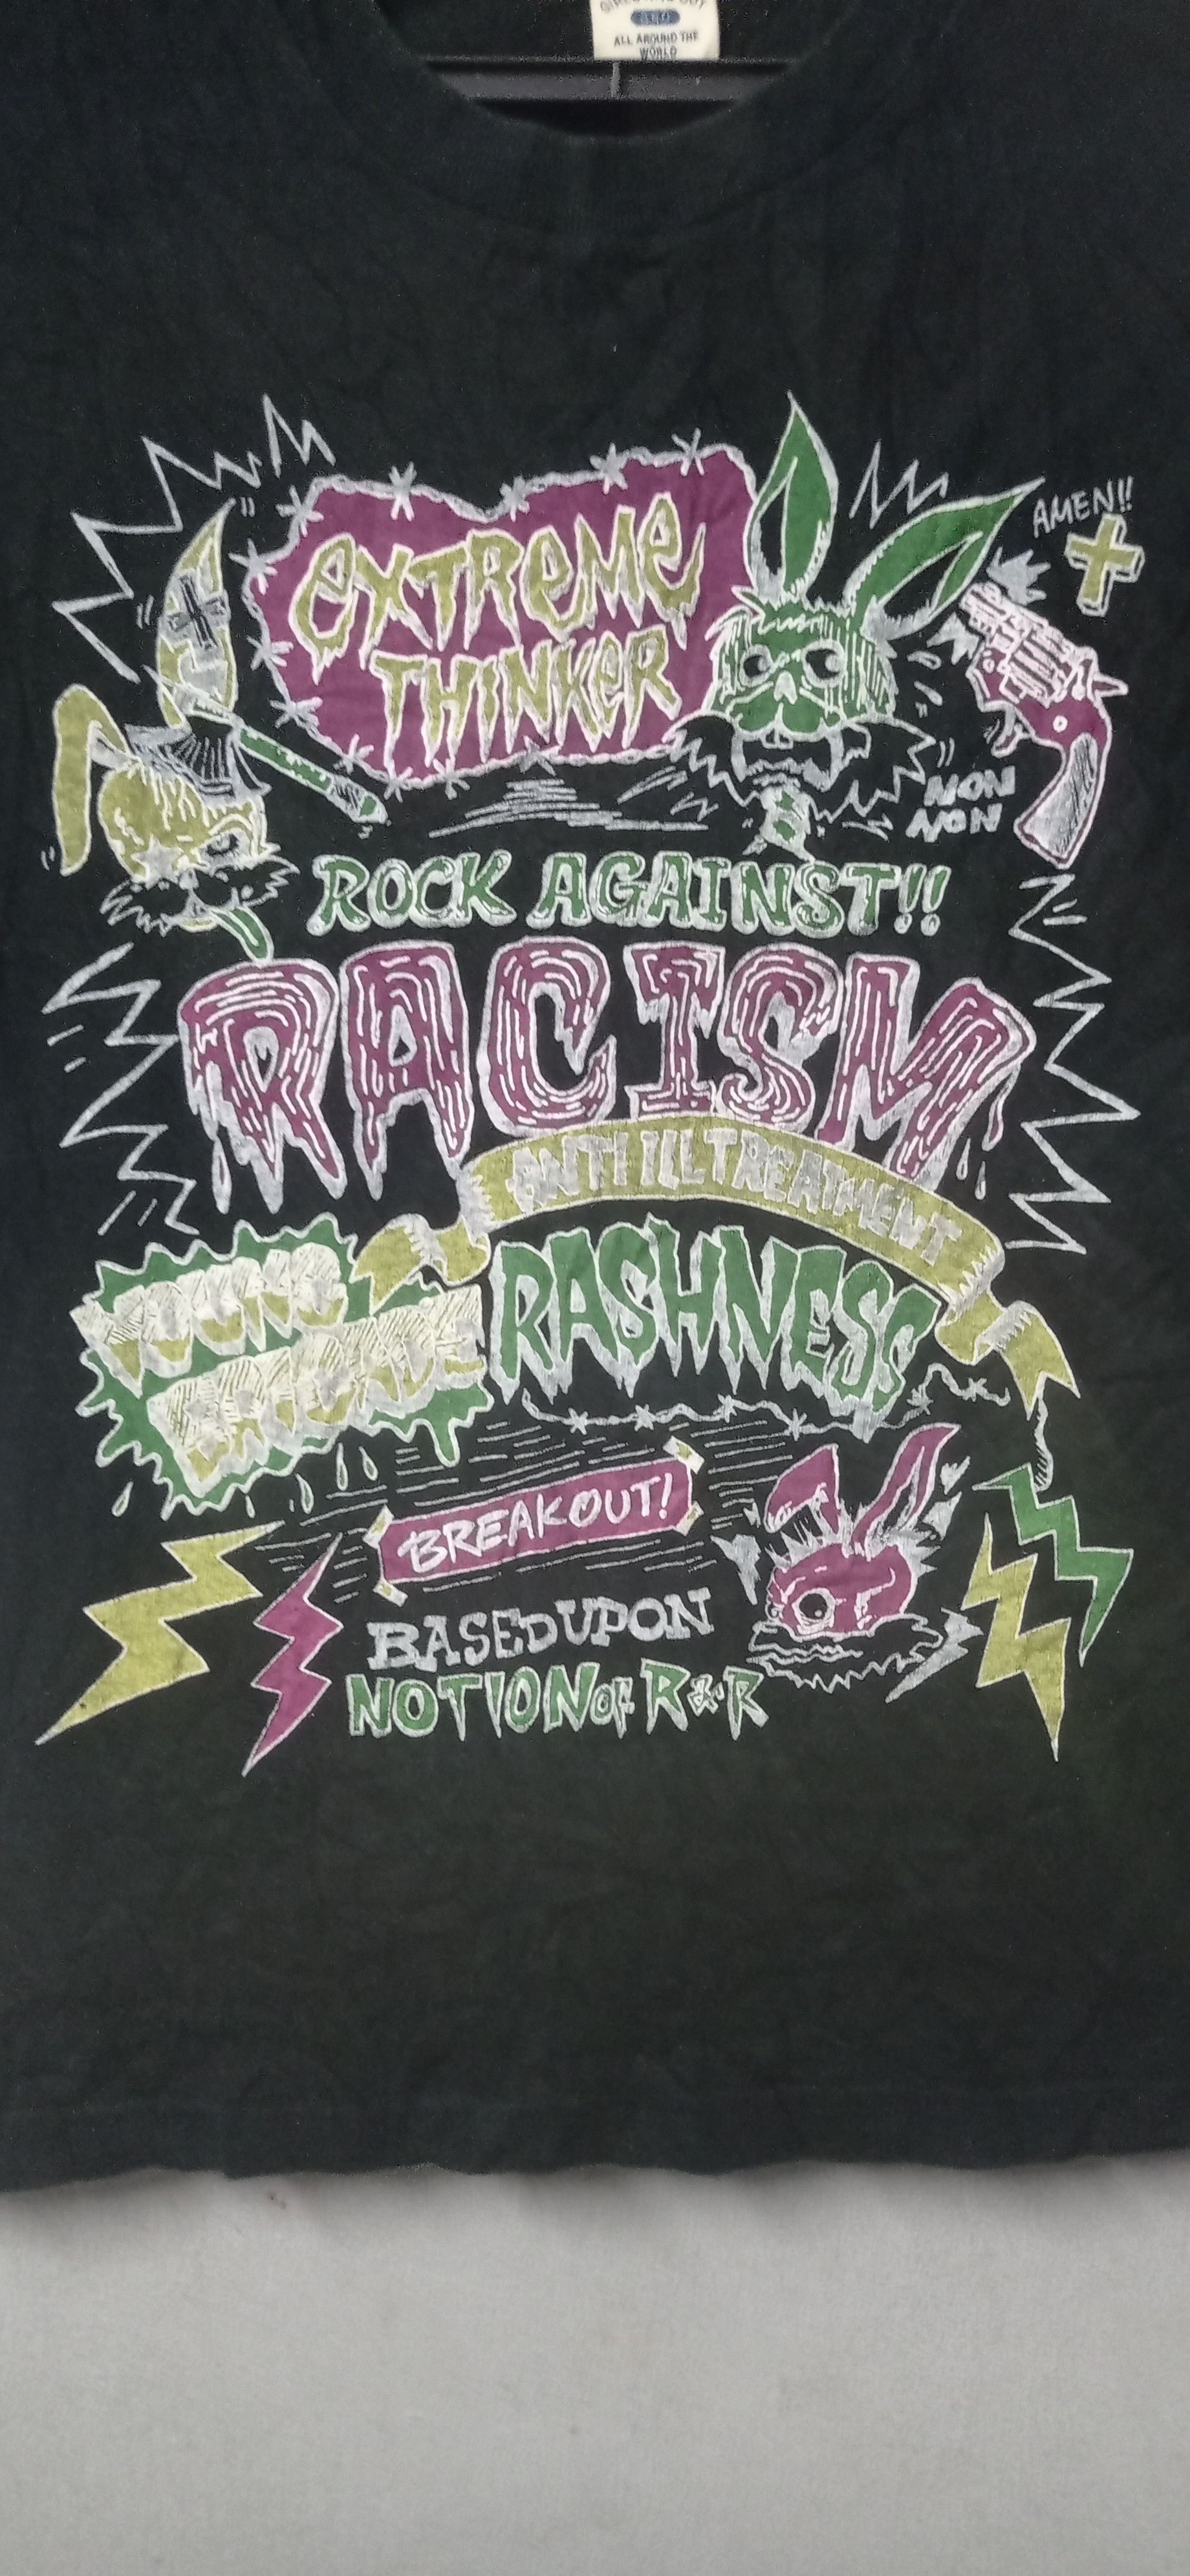 ALL AROUND THE
WORLD
AMEN!!
EXTREME
THINKER
NON
NON
ROCK AGAINST!!
RACISM
ANTI ILLTREATMENT
YOUNG
BRIGADE
RASHNESS
BREAKOUT!
BASED UPON
NOTION OF R&R